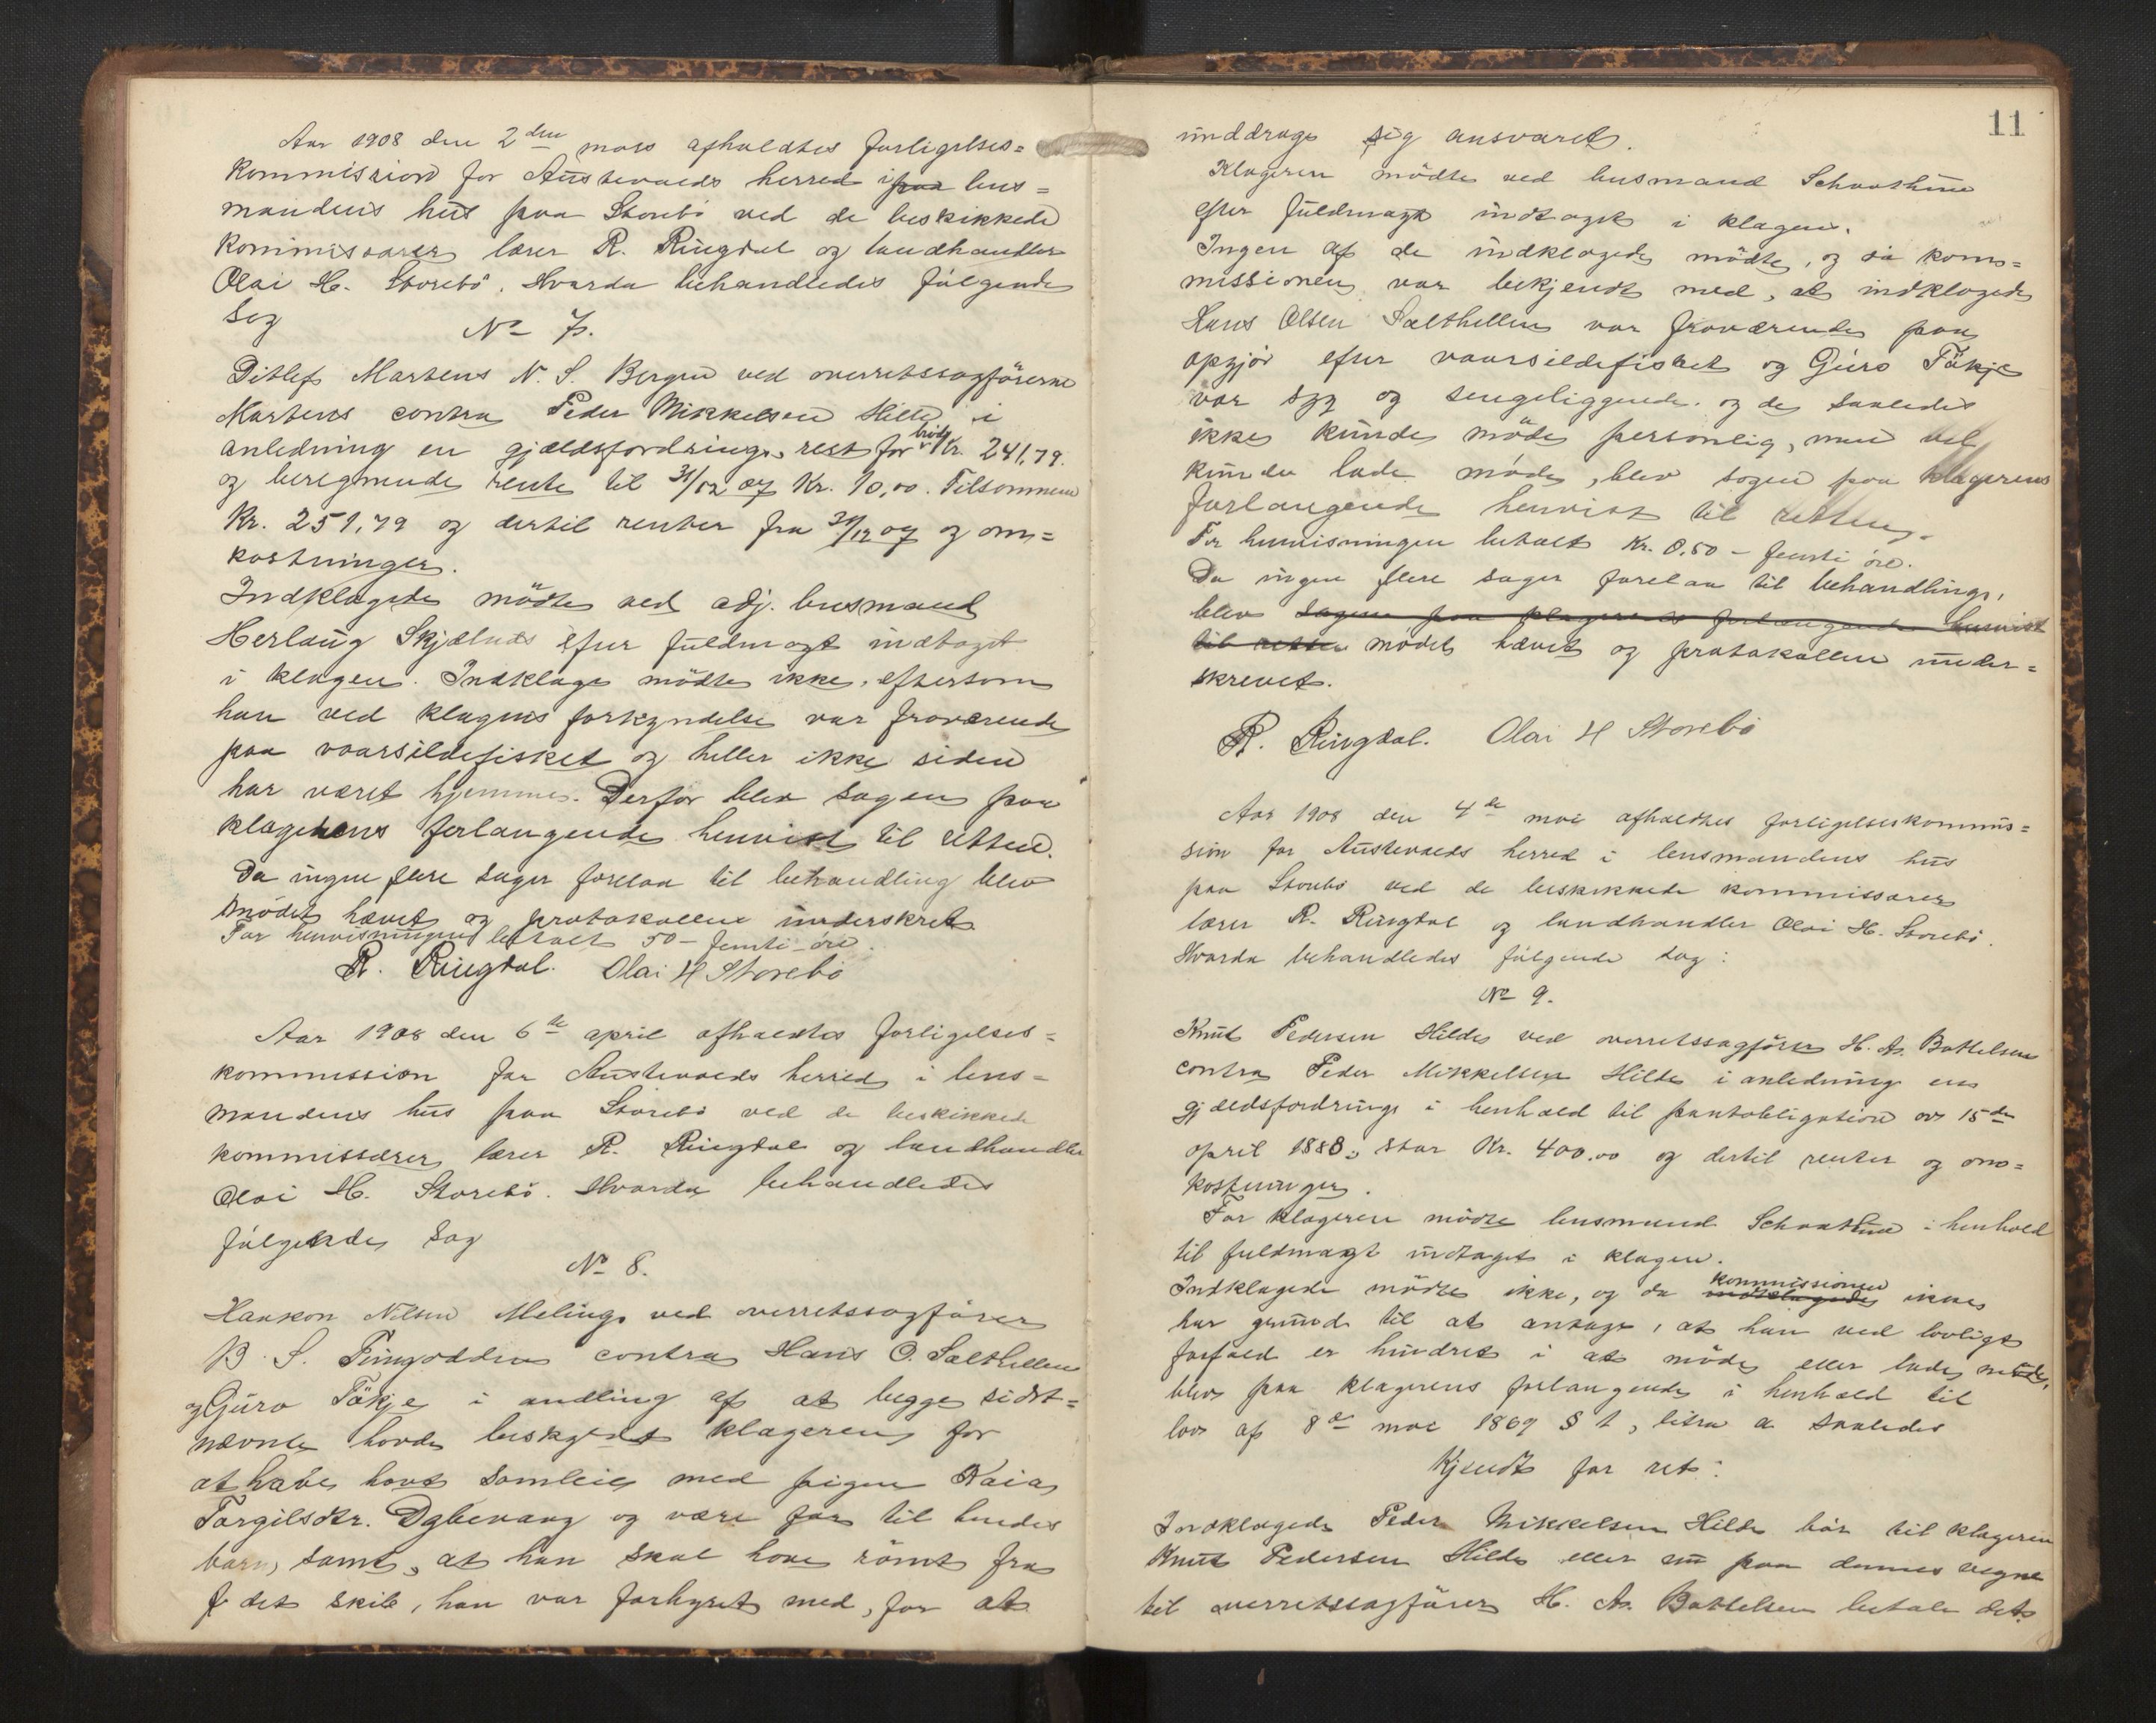 Aar 1908 den 2den mars afholdtes forligelses=
kommission for Austevolds herred i paa lens=
mandens hus paa Storebö ved de beskikkede
kommissærer, lærer R. Ringdal og landhandler
Olai H. Storebö. Hvorda behandledes fölgende
Sag
No 7.
Ditlef Martens N. S. Bergen ved overretssagförerne
Martens contra Peder Mikkelsen Hille i
anledning en gjældsfordrings rest for Kr. 241,79.
og beregnende rente til 31/12 07 Kr. 10,00. Tilsammen
Kr. 251,79 og dertil renter fra 31/12 07 og om=
kostninger.
Indklagede mödte ved adj. lensmand
Herlaug Skjælnes efter fuldmagt indtaget
i klagen. Indklage mödte ikke, eftersom
han ved klagens forkyndelse var fraværende
paa vaarsildefisket og heller ikke siden
har været hjemme. Derfor blev sagen paa
klagerens forlangende henvist til retten.
Da ingen flere sager forelaa til behandling blev
mödet hævet og protokollen underskret
For henvisningen betalt 50 - femti öre.
R. Ringdal. Olai H Storebö
Aar 1908 den 6te april afholdtes forligelses=
kommission for Austevolds herred i lens=
mandens hus paa Storebö ved de beskikkede
kommissærer lærer R. Ringdal og landhandler
Olai H. Storebö. Hvorda behandledes
fölgende Sag
No 8.
Haakon Nilsen Meling ved overretssagförer
B. S. contra Hans O. Salthellen
og Guro Tökje i andling af at begge sidst=
nævnte havde beskyldt klageren for
at have havt samleie med pigen Kaia
Torgilsdtr. og være far til hendes
barn, samt, at han skal have römt fra
f det skib, han var forhyret med, for at
11
unddrage sig ansvaret.
Klageren mödte ved lensmand Schrothun
efter fuldmagt indtaget i klagen.
Ingen af de indklagede mödte, og da kom=
missionen var bekjendt med, at indklagede
Hans Olsen Salthellen var fraværende paa
opgjör efter vaarsildefisket og Guro Tökje
var syg og sengeliggende og de saaledes
ikke kunde möde personlig, men vel
kunde lade möde, blev sagen paa klagerens
forlangende henvist til retten.
For henvisningen betalt Kr. 0,50 - femti öre.
Da ingen flere sager forelaa til behandling,
blev sagen paa klagerens forlangende henvist
til retten mödet hævet og protokollen under=
skrevet.
R. Ringdal. Olai H Storebö
Aar 1908 den 4de mai afholdtes forligelseskommis=
sion for Austevolds herred i lensmandens hus
paa Storebö ved de beskikkede kommissærer
lærer R. Ringdal og landhandler Olai H. Storebö.
Hvorda behandledes fölgende sag:
No 9.
Knut Pedersen Hilde ved overretssagförer H. A. Battelsen
contra Peder Mikkelsen Hilde i anledning en
gjældsfordring i henhold til pantobligation av 15de
april 1888, stor Kr. 400,00 og dertil renter og om=
kostninger.
For klageren mödte lensmand Schrothun i henhold
til fuldmagt indtaget i klagen.
Indklagede mödte ikke, og da indklagede kommissionen ikke
har grund til at antage, at han ved lovligt
forfald er hindret i at möde eller lade möde,
blev paa klagerens forlangende i henhold til
lov af 8de mai 1869 § 1, litra a saaledes
Kjendt for ret:
Indklagede Peder Mikkelsen Hilde bör til klageren
Knut Pedersen Hilde eller nu paa dennes vegne
til overretssagförer H. A. Battelsen betale det